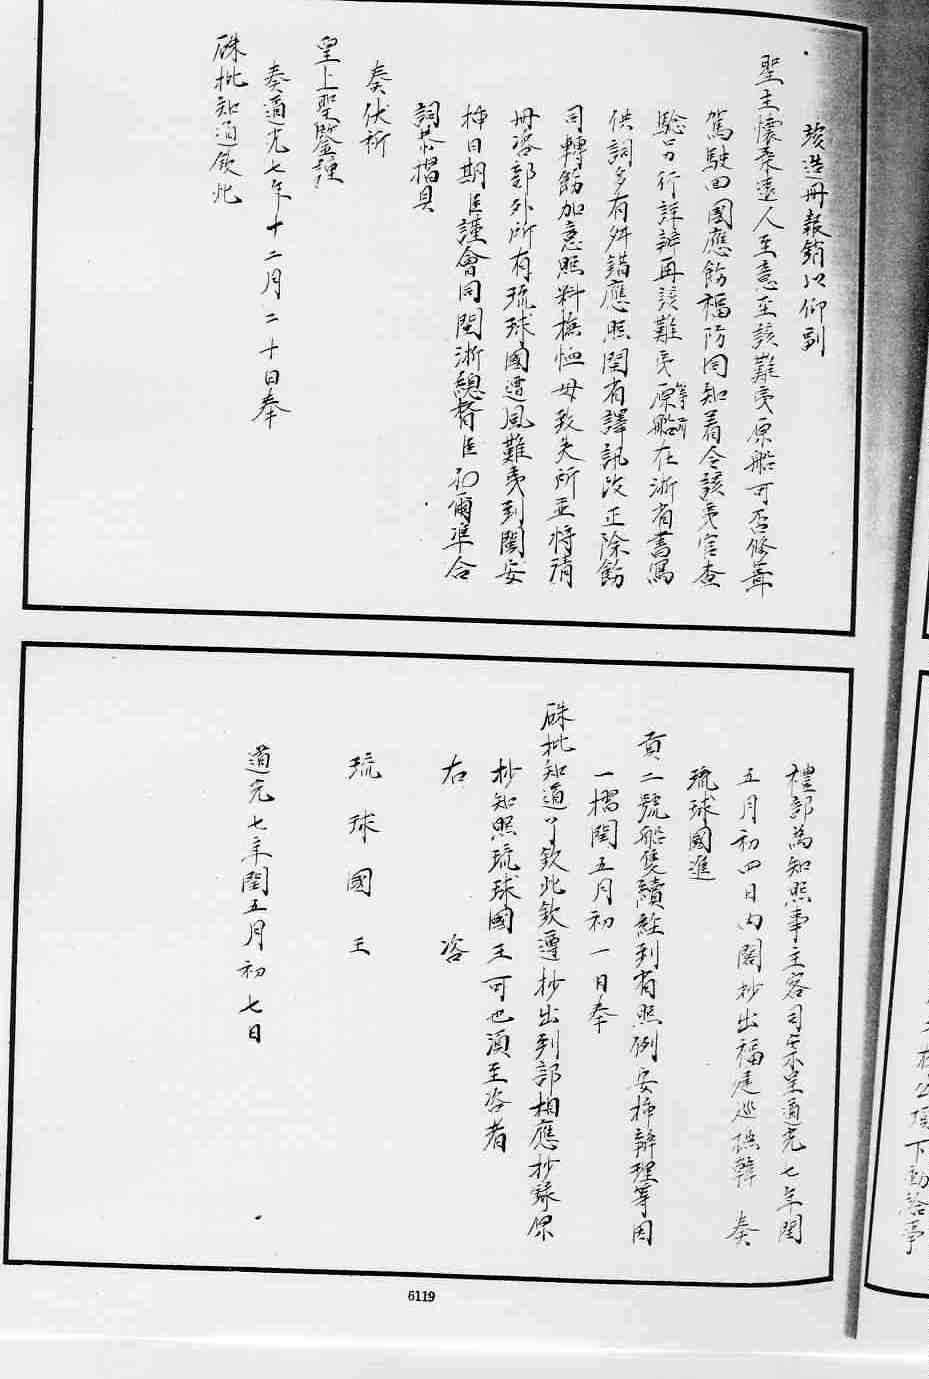 竣造冊報銷以仰副
聖主懷柔遠人至意至該難夷原船可否修葺
駕駛回國應飭福防同知着令該夷官查
驗另行詳辦再該難夷等原船所在浙省書寫
供詞多有舛錯應照閩省譯訊改正除飭
司轉飭加意照料撫恤毋致失所並將清
冊咨部外所有琉球國遭風難夷到閩安
插日期臣謹會同閩浙總督臣孫爾準合
詞恭摺具
奏伏祈
皇上聖鑒謹
奏道光七年十二月二十日奉
硃批知道欽此
禮部為知照事主客司案呈道光七年閏
五月初四日內閣抄出福建巡撫韓 奏
琉球國進
貢二號船隻續經到省照例安插辦理等因
一摺閏五月初一日奉
硃批知道了欽此欽遵抄出到部相應抄錄原
抄知照琉球國王可也須至咨者
右 咨
琉球國王
道光七年閏五月初七日
6119